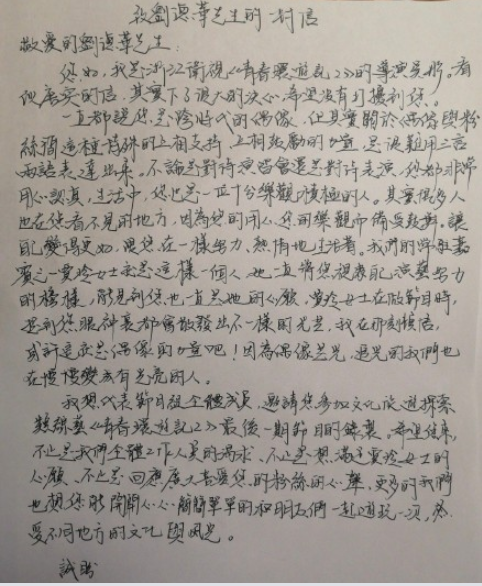 致劉德華先生的一封信
敬愛的劉德華先生:
您好,我是浙江衛視《青春環遊記2》的導演吳彤。有
些唐突的信,其實下了很大的決心,希望沒有打擾到您。
一直都說您是跨時代的偶像,但其實關於偶像與粉
絲間這種特殊的互相支持、互相鼓勵的力量,是很難用三言
兩語表達出來。不論是對待演唱會還是對待表演,您都非常
用心認真,生活中,您也是一位十分樂觀積極的人。其實很多人
也在您看不見的地方,因為您的用心、您的樂觀而備受鼓舞。讓
自己變得更好,跟您在一樣努力、熱情地生活著。我們的常駐嘉
賓之一賈玲女士就是這樣一個人,她一直將您視為自己演藝努力
的榜樣,能見到您也一直是她的心願,賈玲女士在做節目時,
提到您眼神裏都會散發出不一樣的光芒,我在那刻相信,
或許這就是偶像的力量吧!因為偶像是光,追光的我們也
在慢慢變成有光亮的人。
我想代表節目組全體成員,邀請您參加文化旅遊探索
類綜藝《青春環遊記2》最後一期節目的錄製。希望您來,
不止是我們全體工作人員的渴求、不止是想滿足賈玲女士的
心願、不止是回應廣大喜愛您的粉絲的心聲,更多的我們
也想您能開開心心、簡簡單單的和朋友們一起遊玩一次,感
受不同地方的文化與風光。
誠盼